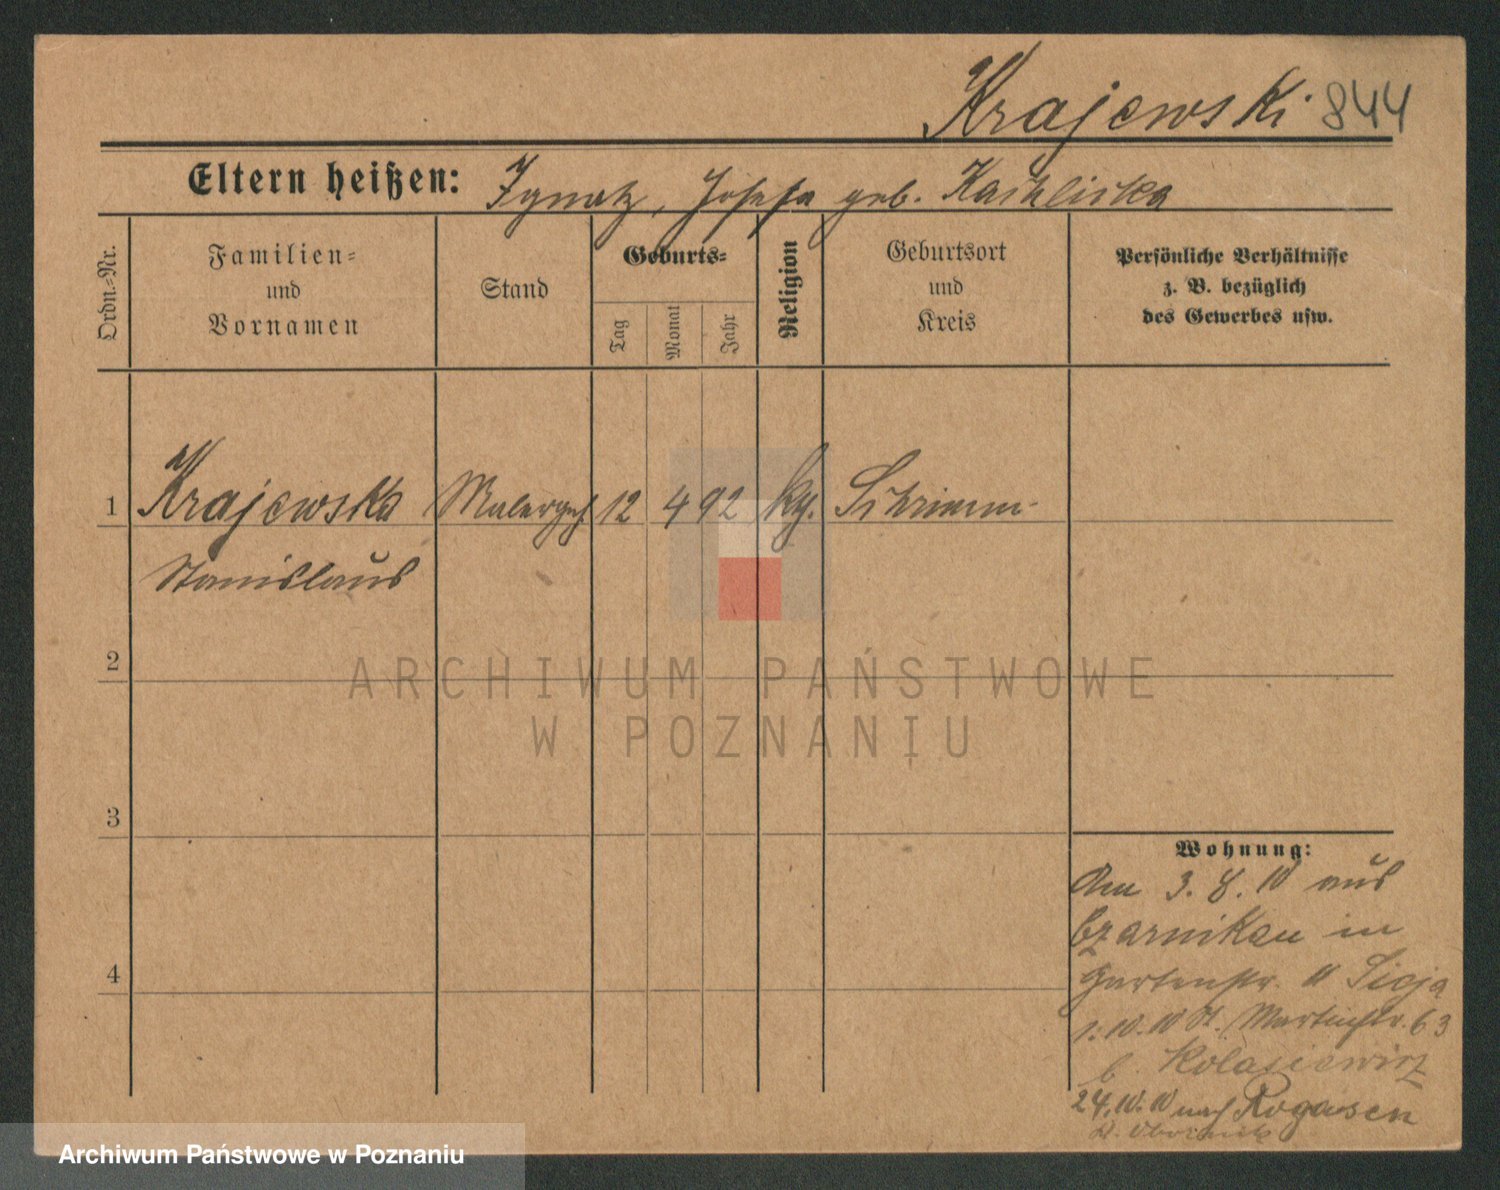 Krajewski 844
Eltern heißen: Ignatz, Josefa geb.
Ordn.-Nr.
Familien-
und
Vornamen
Stand
Geburts-
Tag
Monat
Jahr
Religion
Geburtsort
und
Kreis
Persönliche Verhältnisse
z. B. bezüglich
des Gewerbes usw.
1 Krajewska Malergeh. 12 4 92 Schrimm
Stanislaus
2
3
4
Wohnung:
Am 3. 8. 10 aus
Czarnikau in
Gartenstr. 11
1. 10. 10 St. Martinstr. 63
b.
24. 10. 10 nach Rogasen
ARCHIWUM PAŃSTWOWE
W POZNANIU
Archiwum Państwowe w Poznaniu